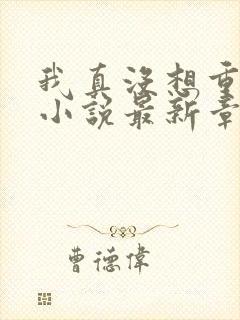 我真没想重
小说最新章
曹德偉